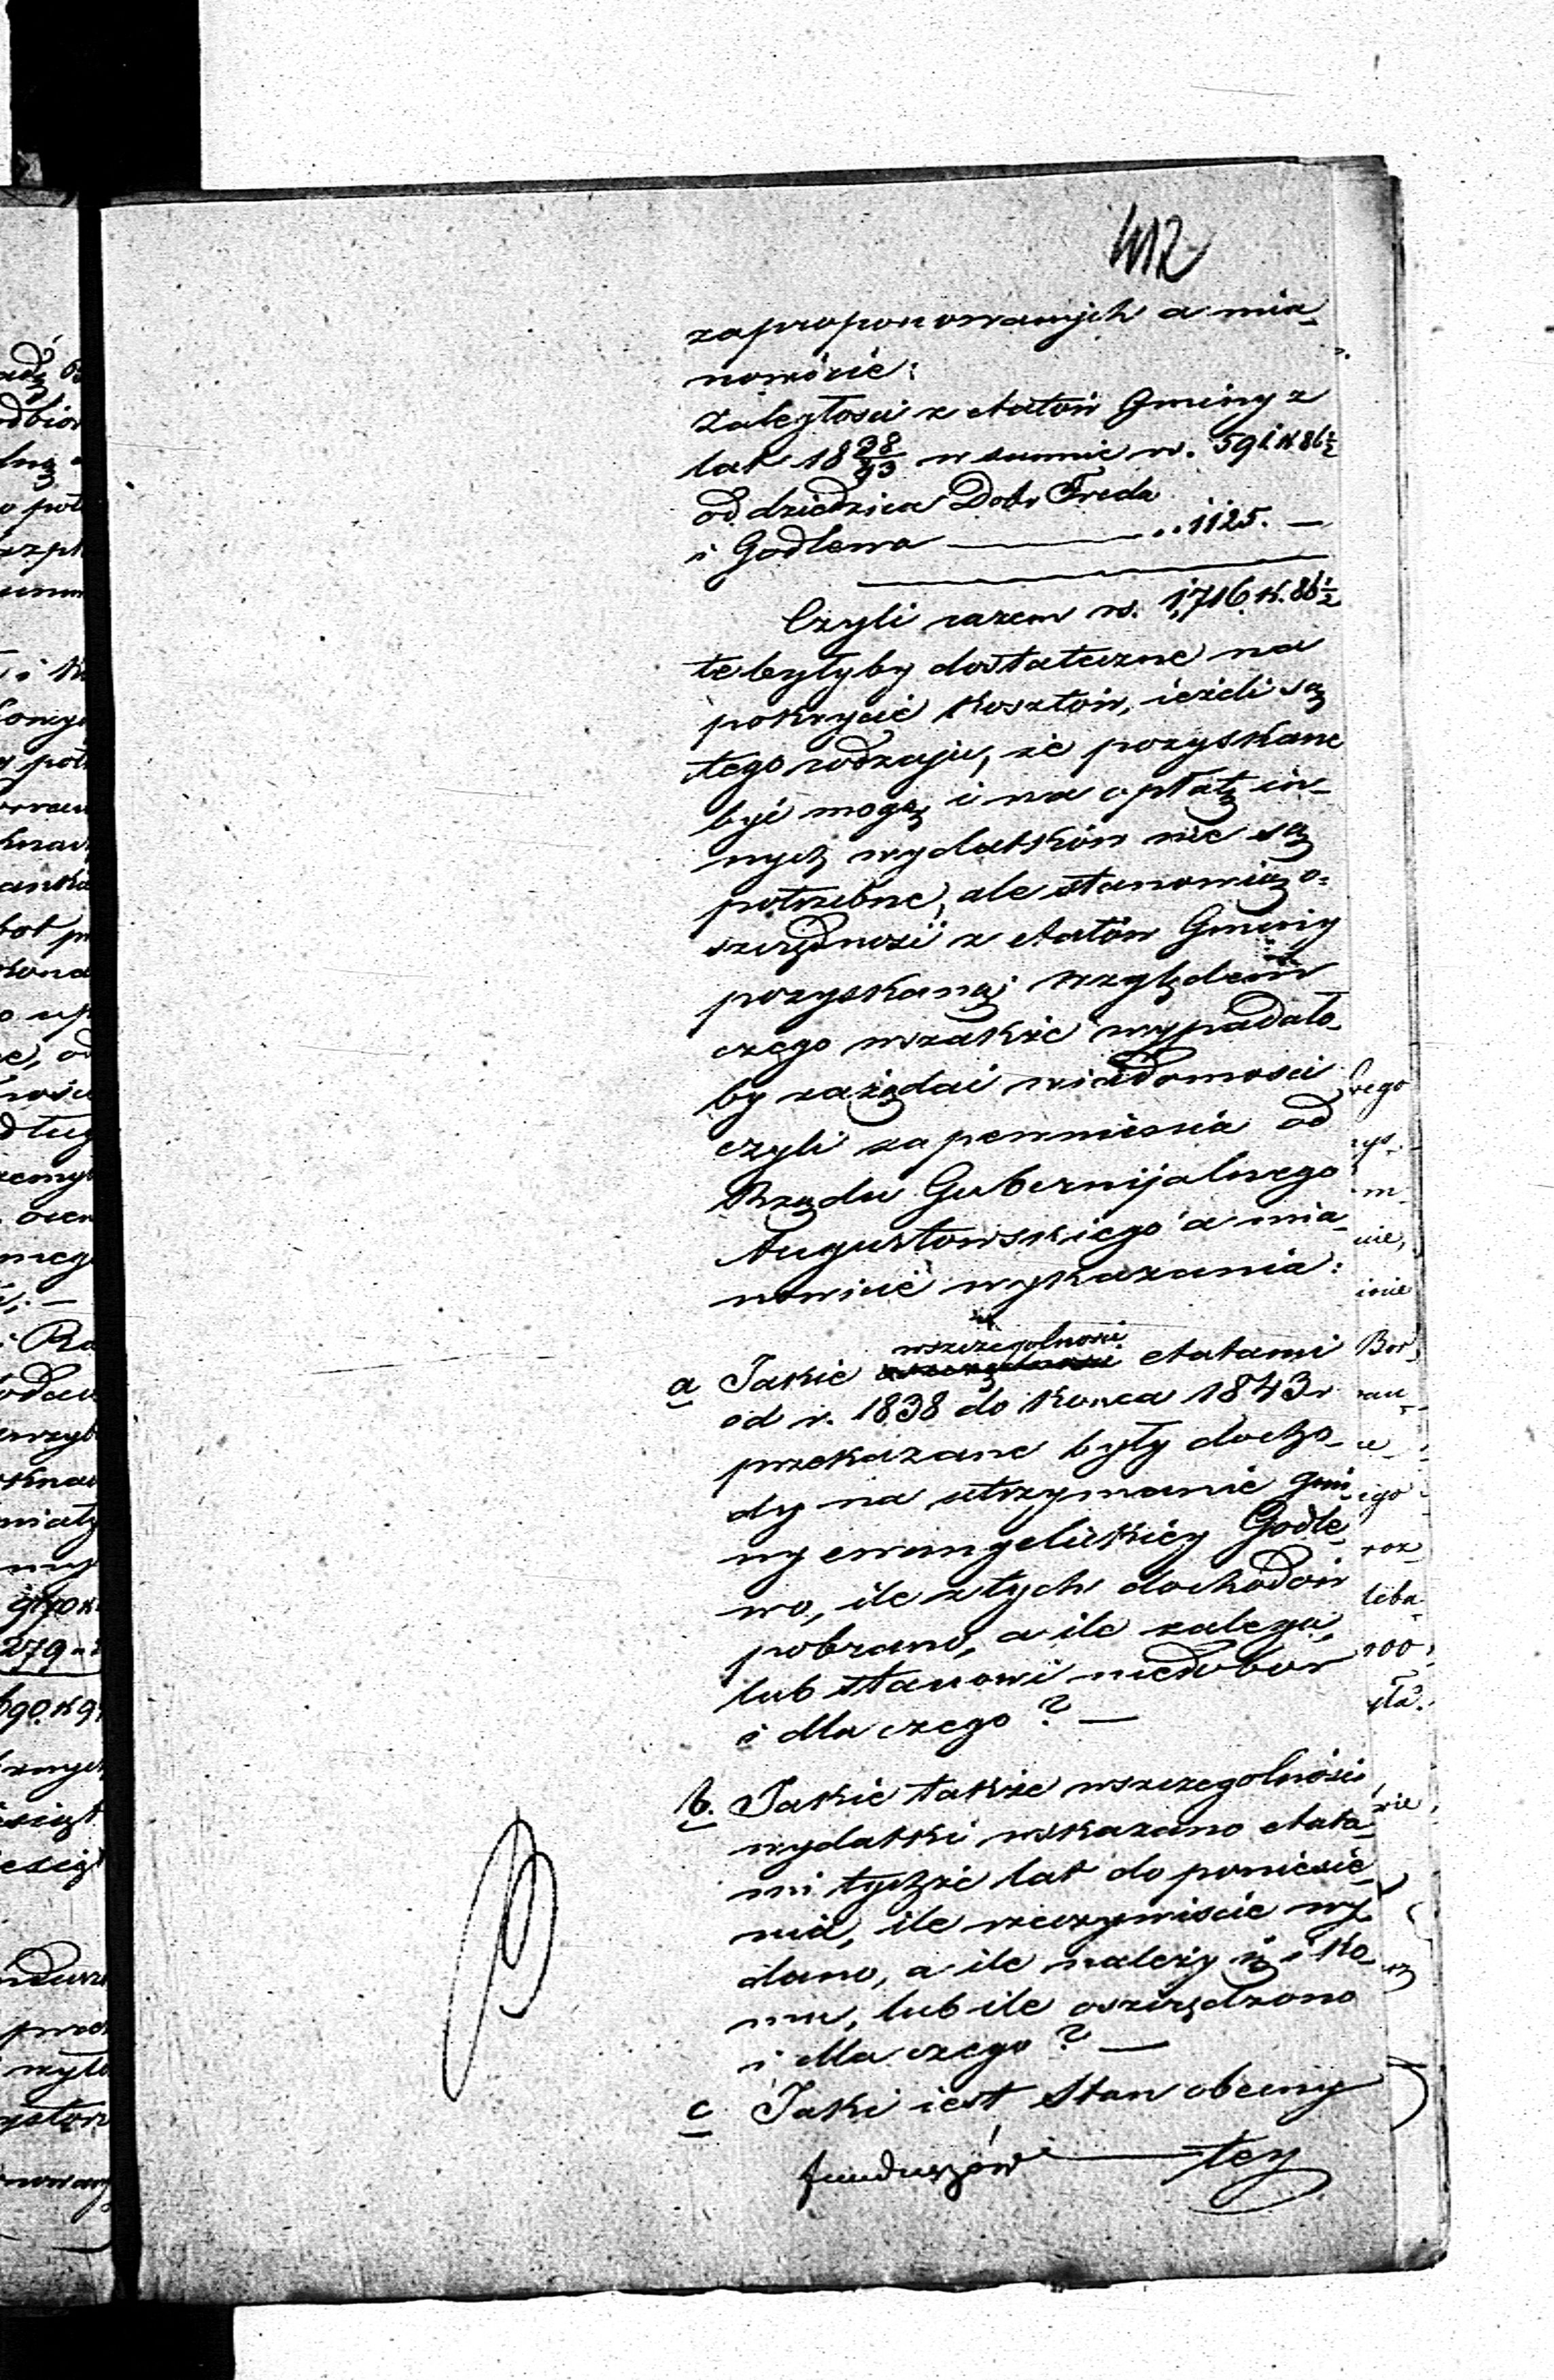 412
zaproponowanych a mia-
nowicie:
Zaległości z etatów Gminy z
lat 18 38/43 w summie rs. 591 k 86 1/2
od dziedzica Dobr Freda
i Godlewa — .. 1125. —
Czyli razem rs. 1,716 k. 86 1/2
te byłyby dostateczne na
pokrycie kosztów, ieżeli są
tego rodzaju, że pozyskane
być mogą i na opłatę in-
nych wydatków nie są
potrzebne, ale stanowią o-
szczędność z etatów Gminy
pozyskaną względem
czego wszakże wypadało-
by zażądać wiadomości
czyli zapewnienia od
Rządu Gubernijalnego
Augustowskiego a mia-
nowicie wykazania:
a Jakie wszczególności etatami
od r. 1838 do końca 1843 r
przekazane były docho-
dy na utrzymanie gmi-
ny ewangelickiéy Godle-
wo, ile z tych dochodów
pobrano, a ile zalega,
lub stanowi niedobor
i dla czego? —
b. Jakie także wszczególności
wydatki wskazano etata-
mi tychże lat do poniesie-
nia, ile rzeczywiście wy-
dano, a ile należy się i ko-
mu, lub ile oszczędzono
i dla czego? —
c Jaki iest stan obecny
funduszów — tey